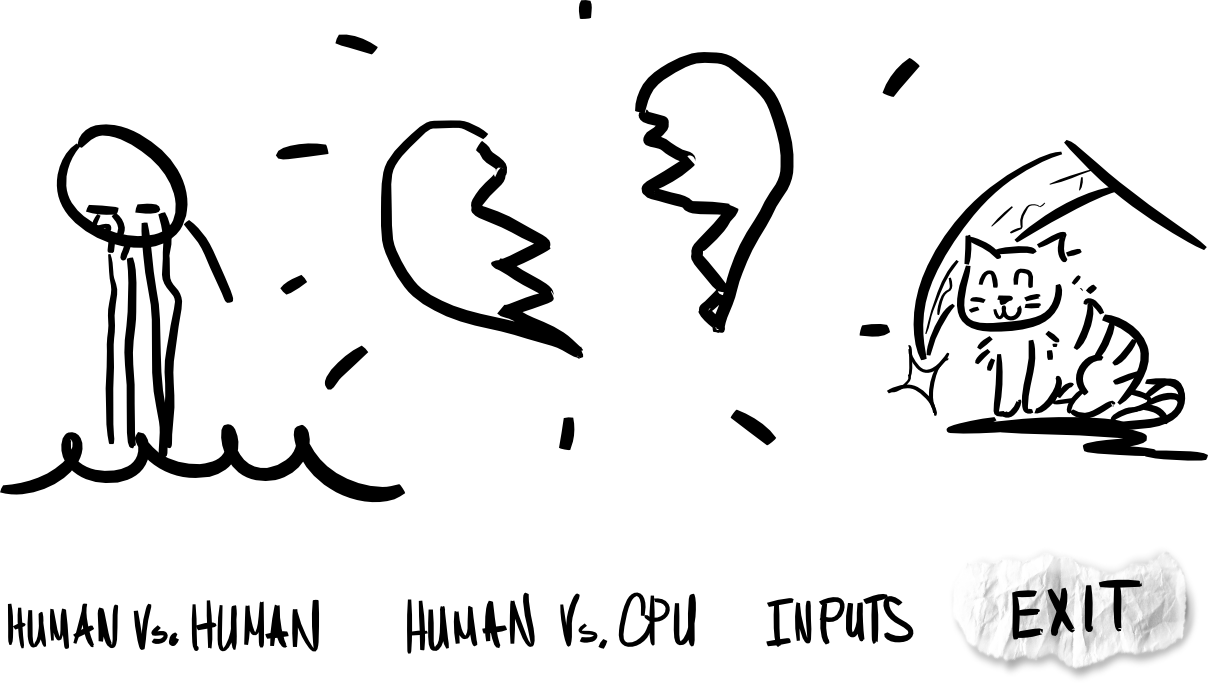 HUMAN Vs. HUMAN HUMAN Vs. CPU INPUTS EXIT